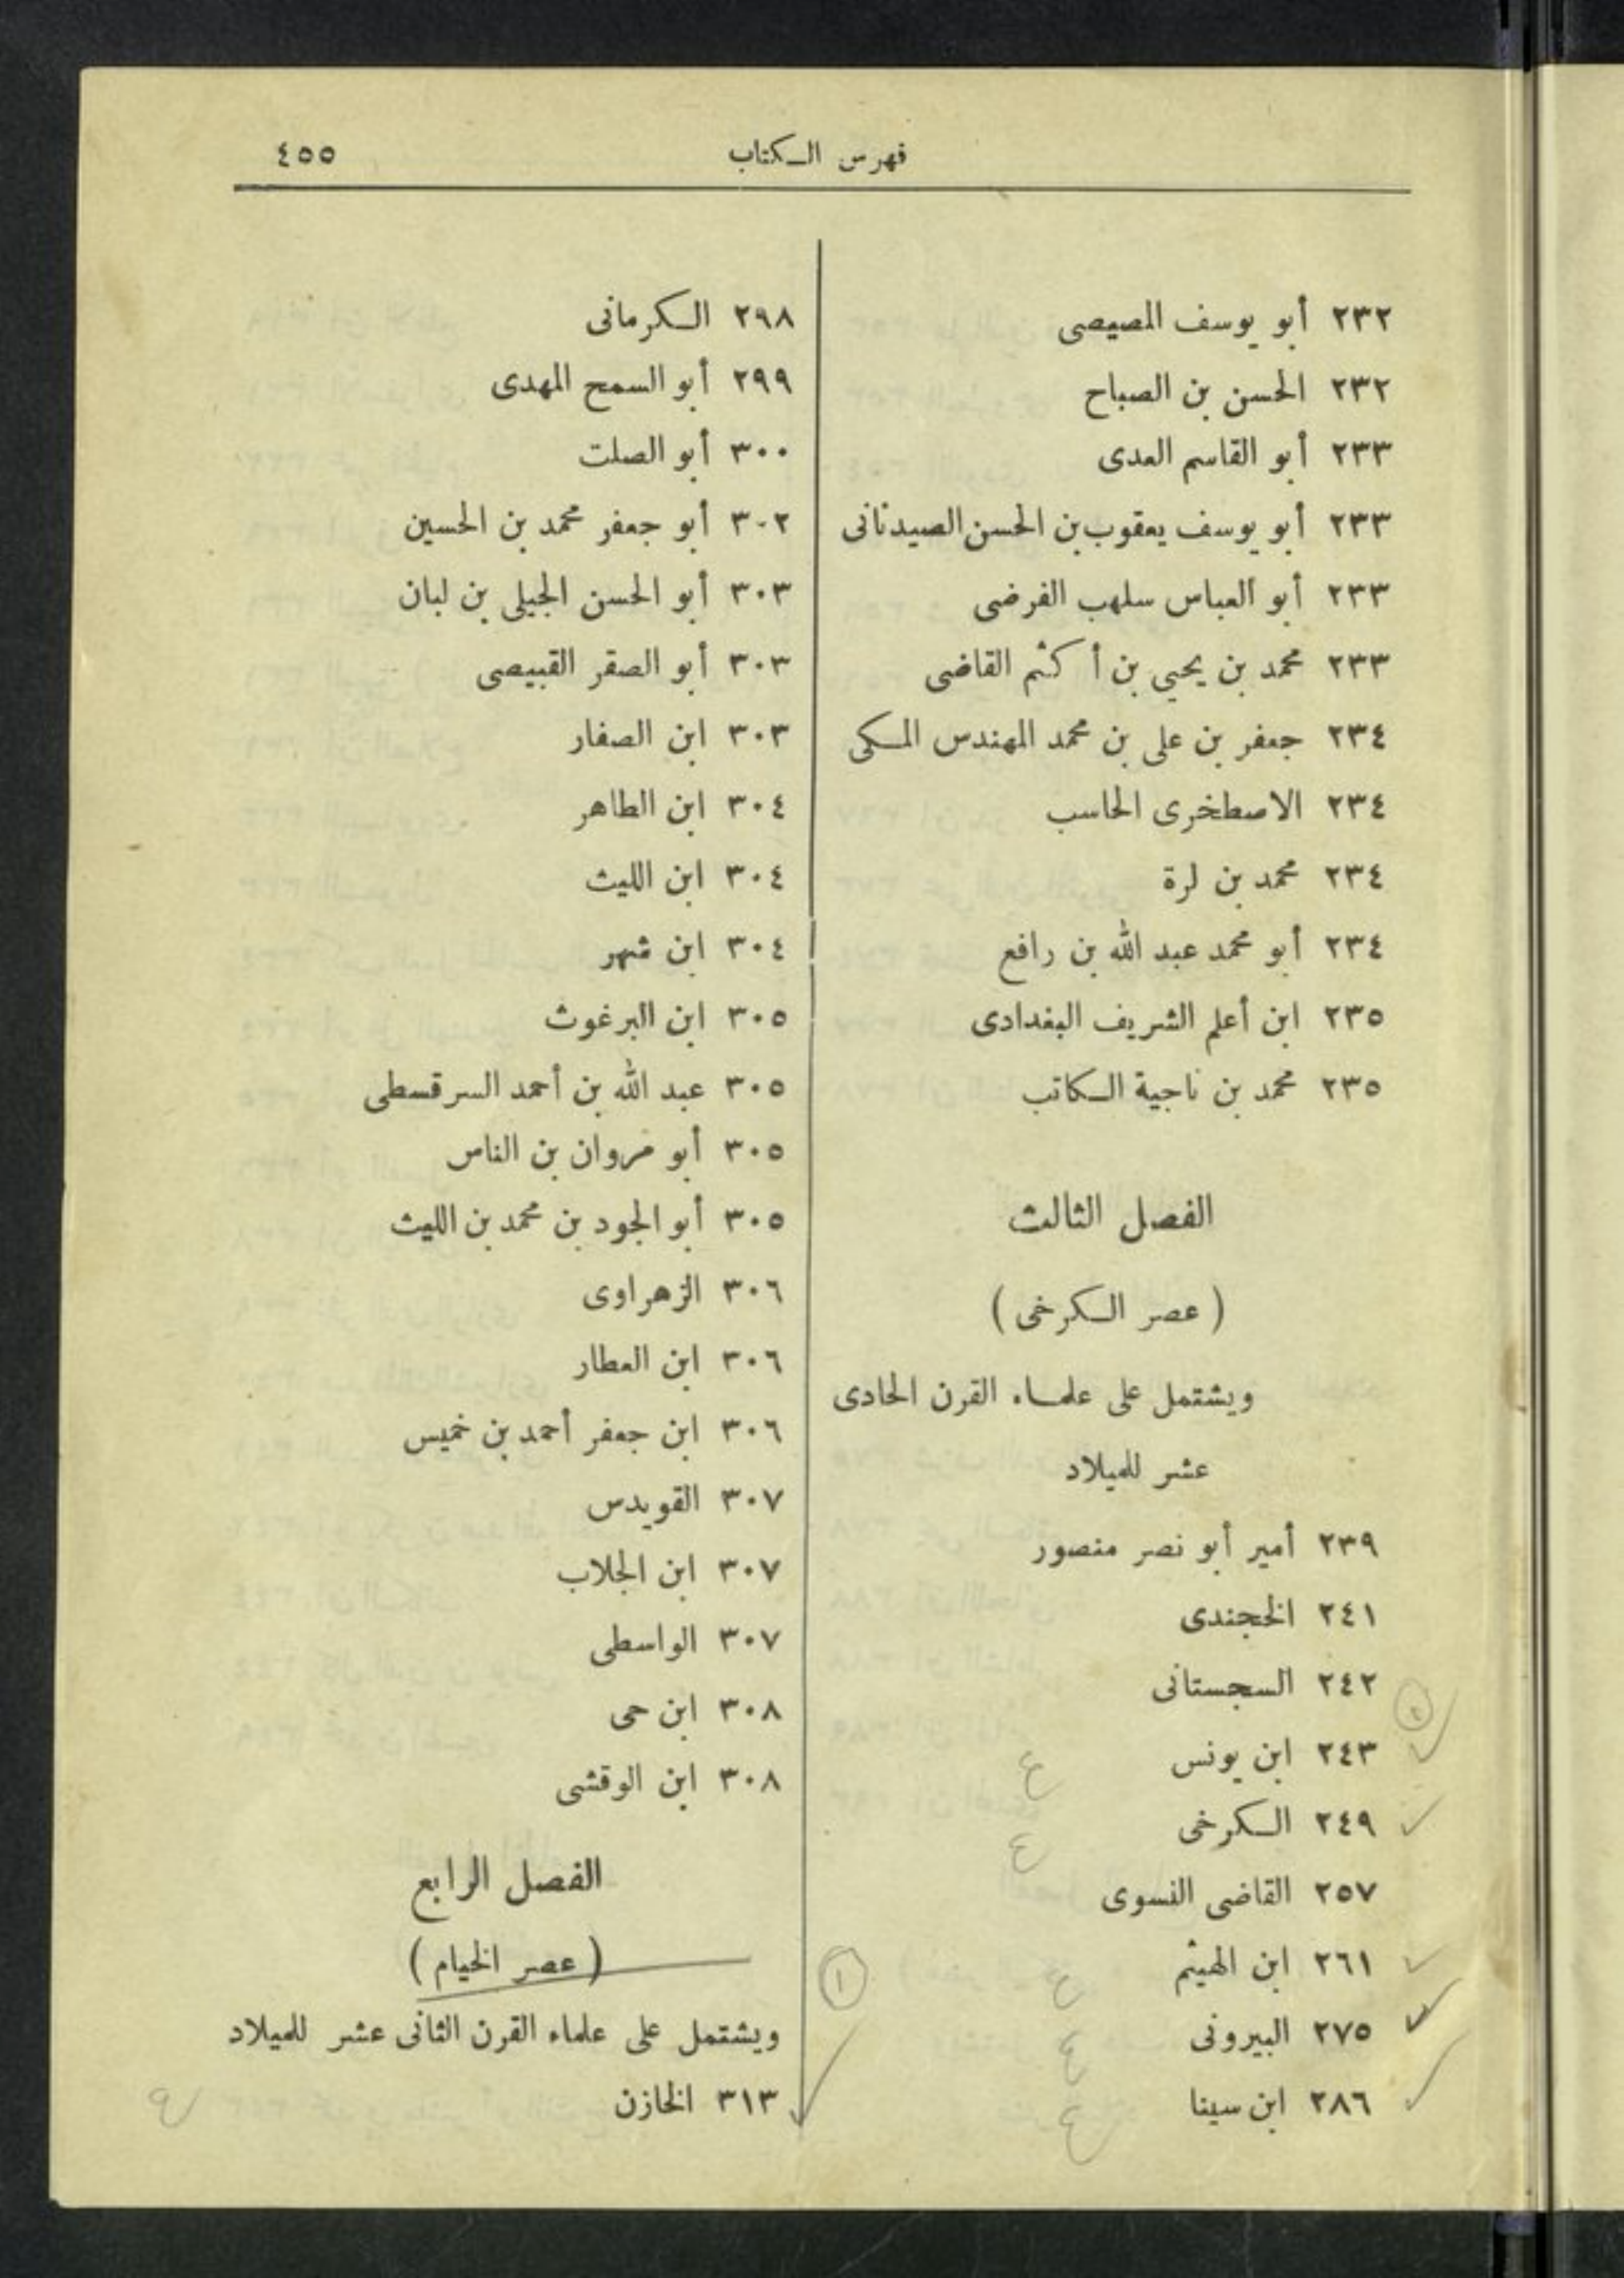 فهرس الكتاب
٤٥٥
٢٣٢ أبو يوسف المصيصى
٢٣٢ الحسن بن الصباح
٢٣٣ أبو القاسم العدى
٢٣٣ أبو يوسف يعقوب بن الحسن الصيدنانى
٢٣٣ أبو العباس سلهب الفرضى
٢٣٣ محمد بن يحيي بن أكثم القاضى
٢٣٤ جعفر بن على بن محمد المهندس المكى
٢٣٤ الاصطخرى الحاسب
٢٣٤ محمد بن لرة
٢٣٤ أبو محمد عبد الله بن رافع
٢٣٥ ابن أعلم الشريف البغدادى
٢٣٥ محمد بن ناجية الكاتب
الفصل الثالث
( عصر الكرخى )
ويشتمل على علماء القرن الحادى
عشر للميلاد
٢٣٩ أمير أبو نصر منصور
٢٤١ الخجندى
٢٤٢ السجستانى
٢
٢٤٣ ابن يونس ع
٢٤٩ الكرخى ع
٢٥٧ القاضى النسوى
٢٦١ ابن الهيثم ع
٢٧٥ البيرونى ع
٢٨٦ ابن سينا ع
٢٩٨ الكرمانى
٢٩٩ أبو السمح المهدى
٣٠٠ أبو الصلت
٣٠٢ أبو جعفر محمد بن الحسين
٣٠٣ أبو الحسن الجيلى بن لبان
٣٠٣ أبو الصقر القبيصى
٣٠٣ ابن الصفار
٣٠٤ ابن الطاهر
٣٠٤ ابن الليث
٣٠٤ ابن شهر
٣٠٥ ابن البرغوث
٣٠٥ عبد الله بن أحمد السرقسطى
٣٠٥ أبو مروان بن الناس
٣٠٥ أبو الجود بن محمد بن الليث
٣٠٦ الزهراوى
٣٠٦ ابن العطار
٣٠٦ ابن جعفر أحمد بن خميس
٣٠٧ القويدس
٣٠٧ ابن الجلاب
٣٠٧ الواسطى
٣٠٨ ابن حى
٣٠٨ ابن الوقشى
الفصل الرابع
( عصر الخيام )
١
ويشتمل على علماء القرن الثانى عشر للميلاد
٣١٣ الخازن ع